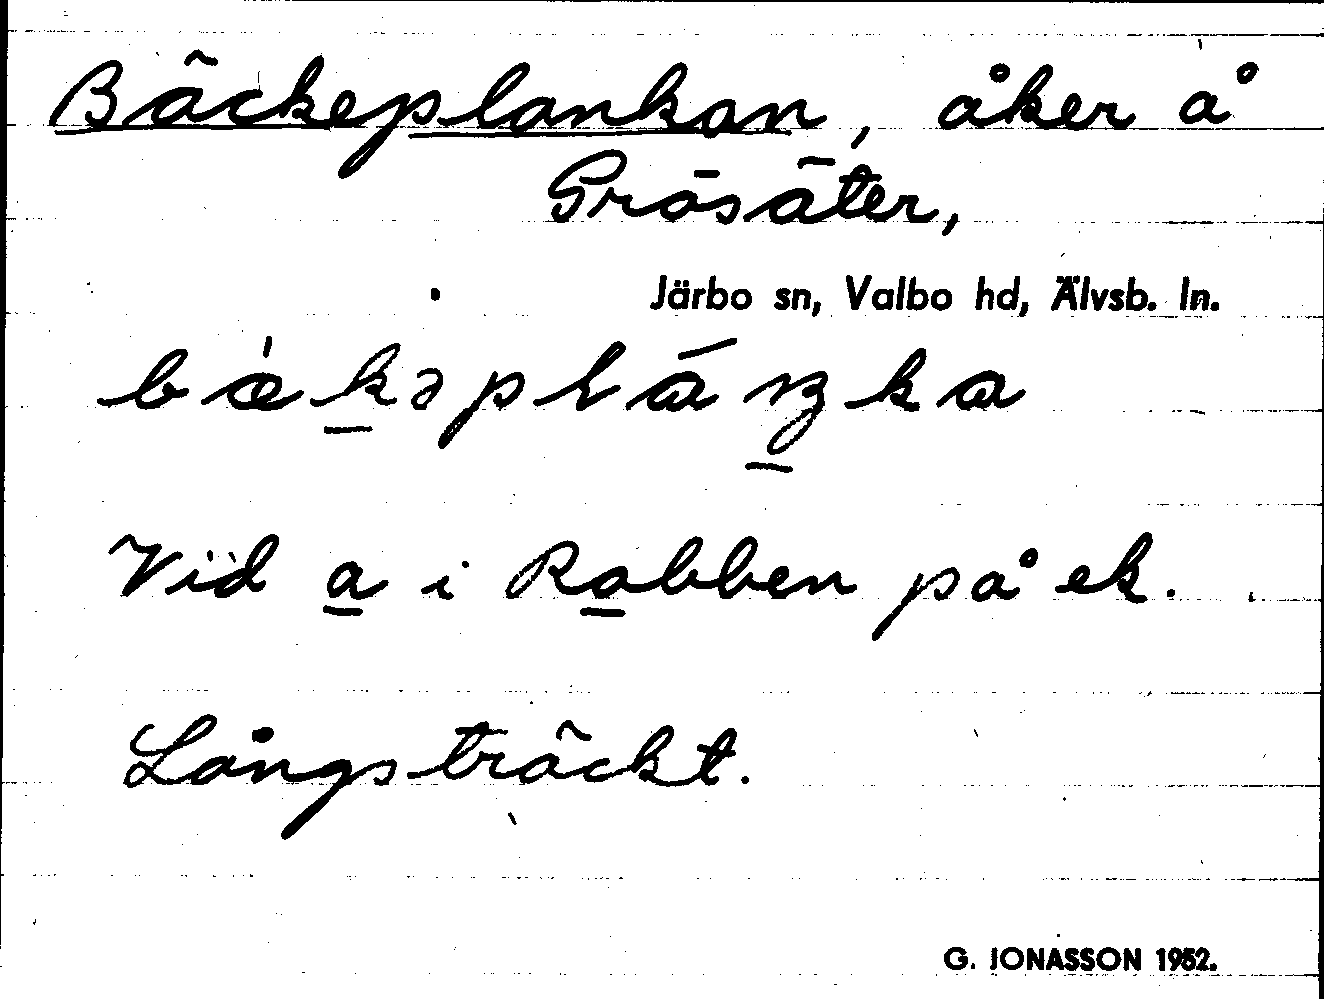 Bäckeplankan, åker å
Gräsäter,
Järbo sn, Valbo hd, Älvsb. ln.
Vid a i Rabben på ek.
Långsträckt.
G. JONASSON 1952.